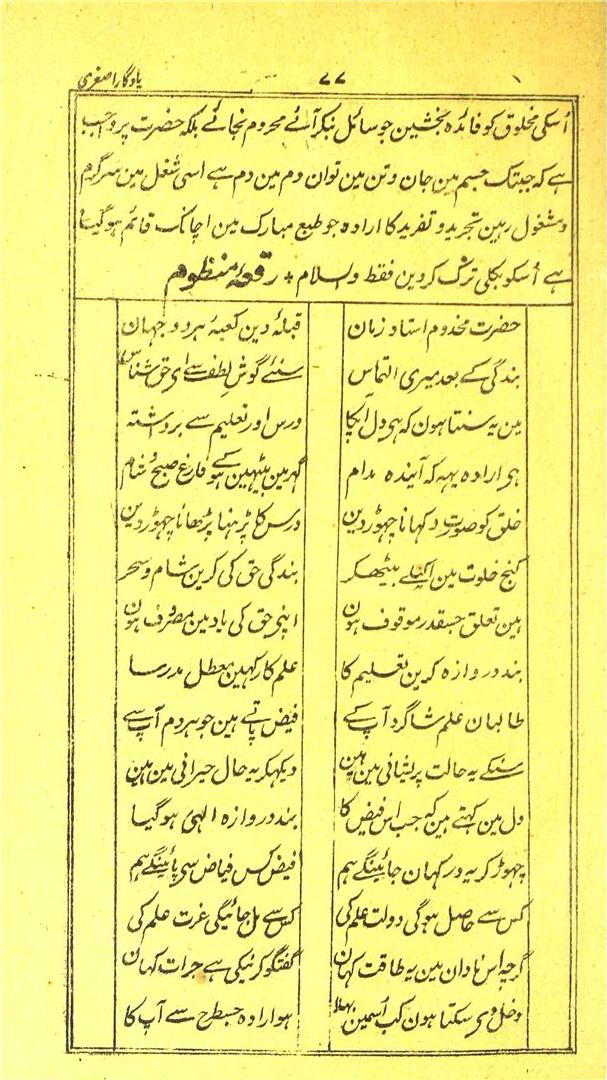 یادگار اصغری
۷۷
اُسکی مخلوق کو فائدہ بخشین جو سائل بنکر آئے محروم نجائے بلکہ حضرت پر واجب
ہے کہ جبتک جسم مین جان و تن مین توان دم مین دم ہے اسی شغل مین سرگرم
و مشغول رہین تجرید و تفرید کا ارادہ جو طبع مبارک مین اچانک قائم ہوگیا
ہے اُسکو بکلی ترک کردین فقط والسلام + رقعۂ منظوم
حضرت مخدوم استاد زمان قبلۂ دین کعبۂ ہر دو جہان
بندگی کے بعد میری التماس سنئے گوش لطف سے ای حق شناس
مین یہ سنتا ہون کہ ہی دل آپکا درس اور تعلیم سے برداشتہ
ہی ارادہ یہہ کہ آیندہ مدام گہر مین بیٹہین ہوکے فارغ صبح و شام
خلق کو صورت دکہانا چہوڑ دین درس کا پڑہنا پڑہانا چہوڑ دین
کنج خلوت مین اکیلے بیٹھکر بندگی حق کی کرین شام و سحر
ہین تعلق جسقدر موقوف ہون اپنی حق کی یاد مین مصروف ہون
بند دروازہ کرین تعلیم کا علم کا رکہین معطل مدرسا
طالبان علم شاگرد آپ کے فیض پاتے ہین جو ہر دم آپ سے
سنکے یہ حالت پریشانی مین ہین دیکہکر یہ حال حیرانی مین ہین
دل مین کہتے ہین کہ جب اس فیض کا بند دروازہ الہی ہوگیا
چہوڑ کر یہ در کہان جائینگے ہم فیض کس فیاض سی پائینگے ہم
کس سے حاصل ہوگی دولت علم کی کس سے مل جائیگی عزت علم کی
گرچہ اس نادان مین یہ طاقت کہان گفتگو کرنیکی ہے جرات کہان
دخل دی سکتا ہون کب اسمین بہلا ہو ارادہ جسطرح سے آپ کا